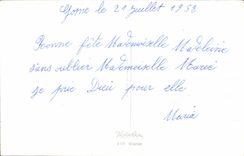 le 21 juillet 1958
Bonne fête Mademoiselle Madeleine
sans oublier Mademoiselle Marie
je prie Dieu pour elle
Maria